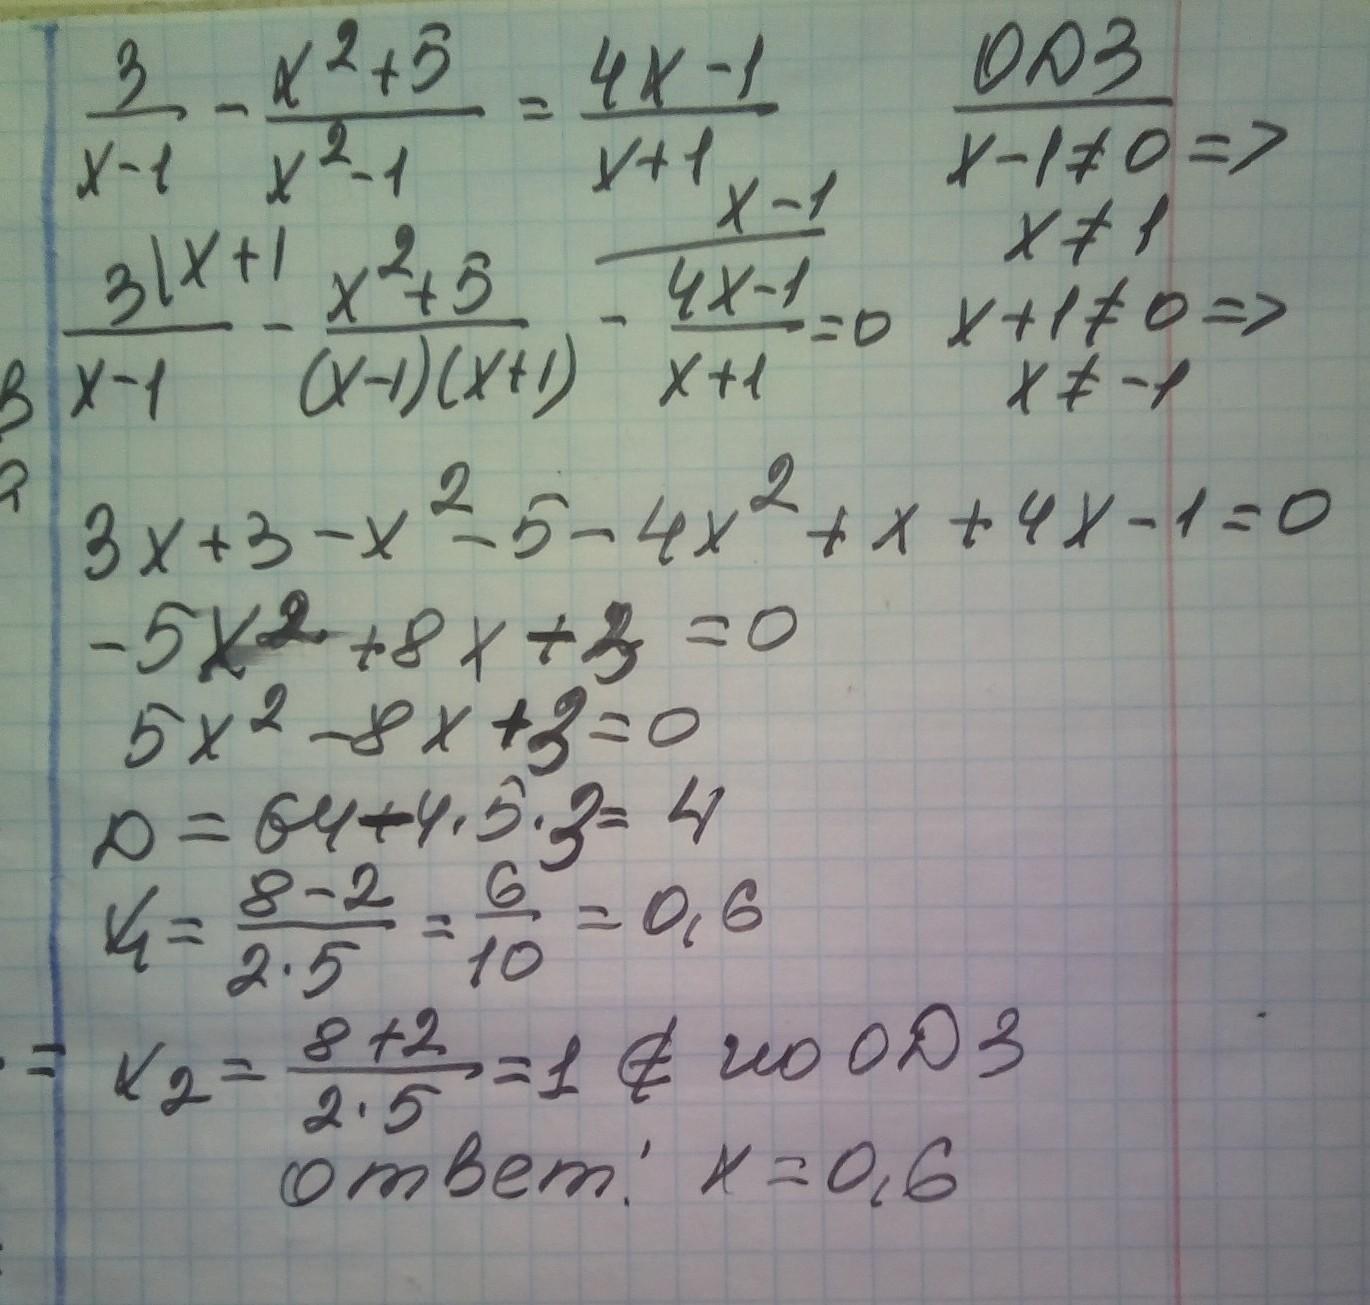 3/(x-1) - (x²+5)/(x²-1) = (4x-1)/(x+1)
ОДЗ
x-1≠0 =>
x≠1
x+1≠0 =>
x≠-1
3\x+1/(x-1) - (x²+5)/((x-1)(x+1)) - x-1/(4x-1)/(x+1) = 0
3x+3-x²-5-4x²+x+4x-1=0
-5x²+8x+3=0
5x²-8x+3=0
D=64-4·5·3=4
x₁=(8-2)/(2·5)=6/10=0,6
x₂=(8+2)/(2·5)=1 ∉ по ОДЗ
ответ: x=0,6